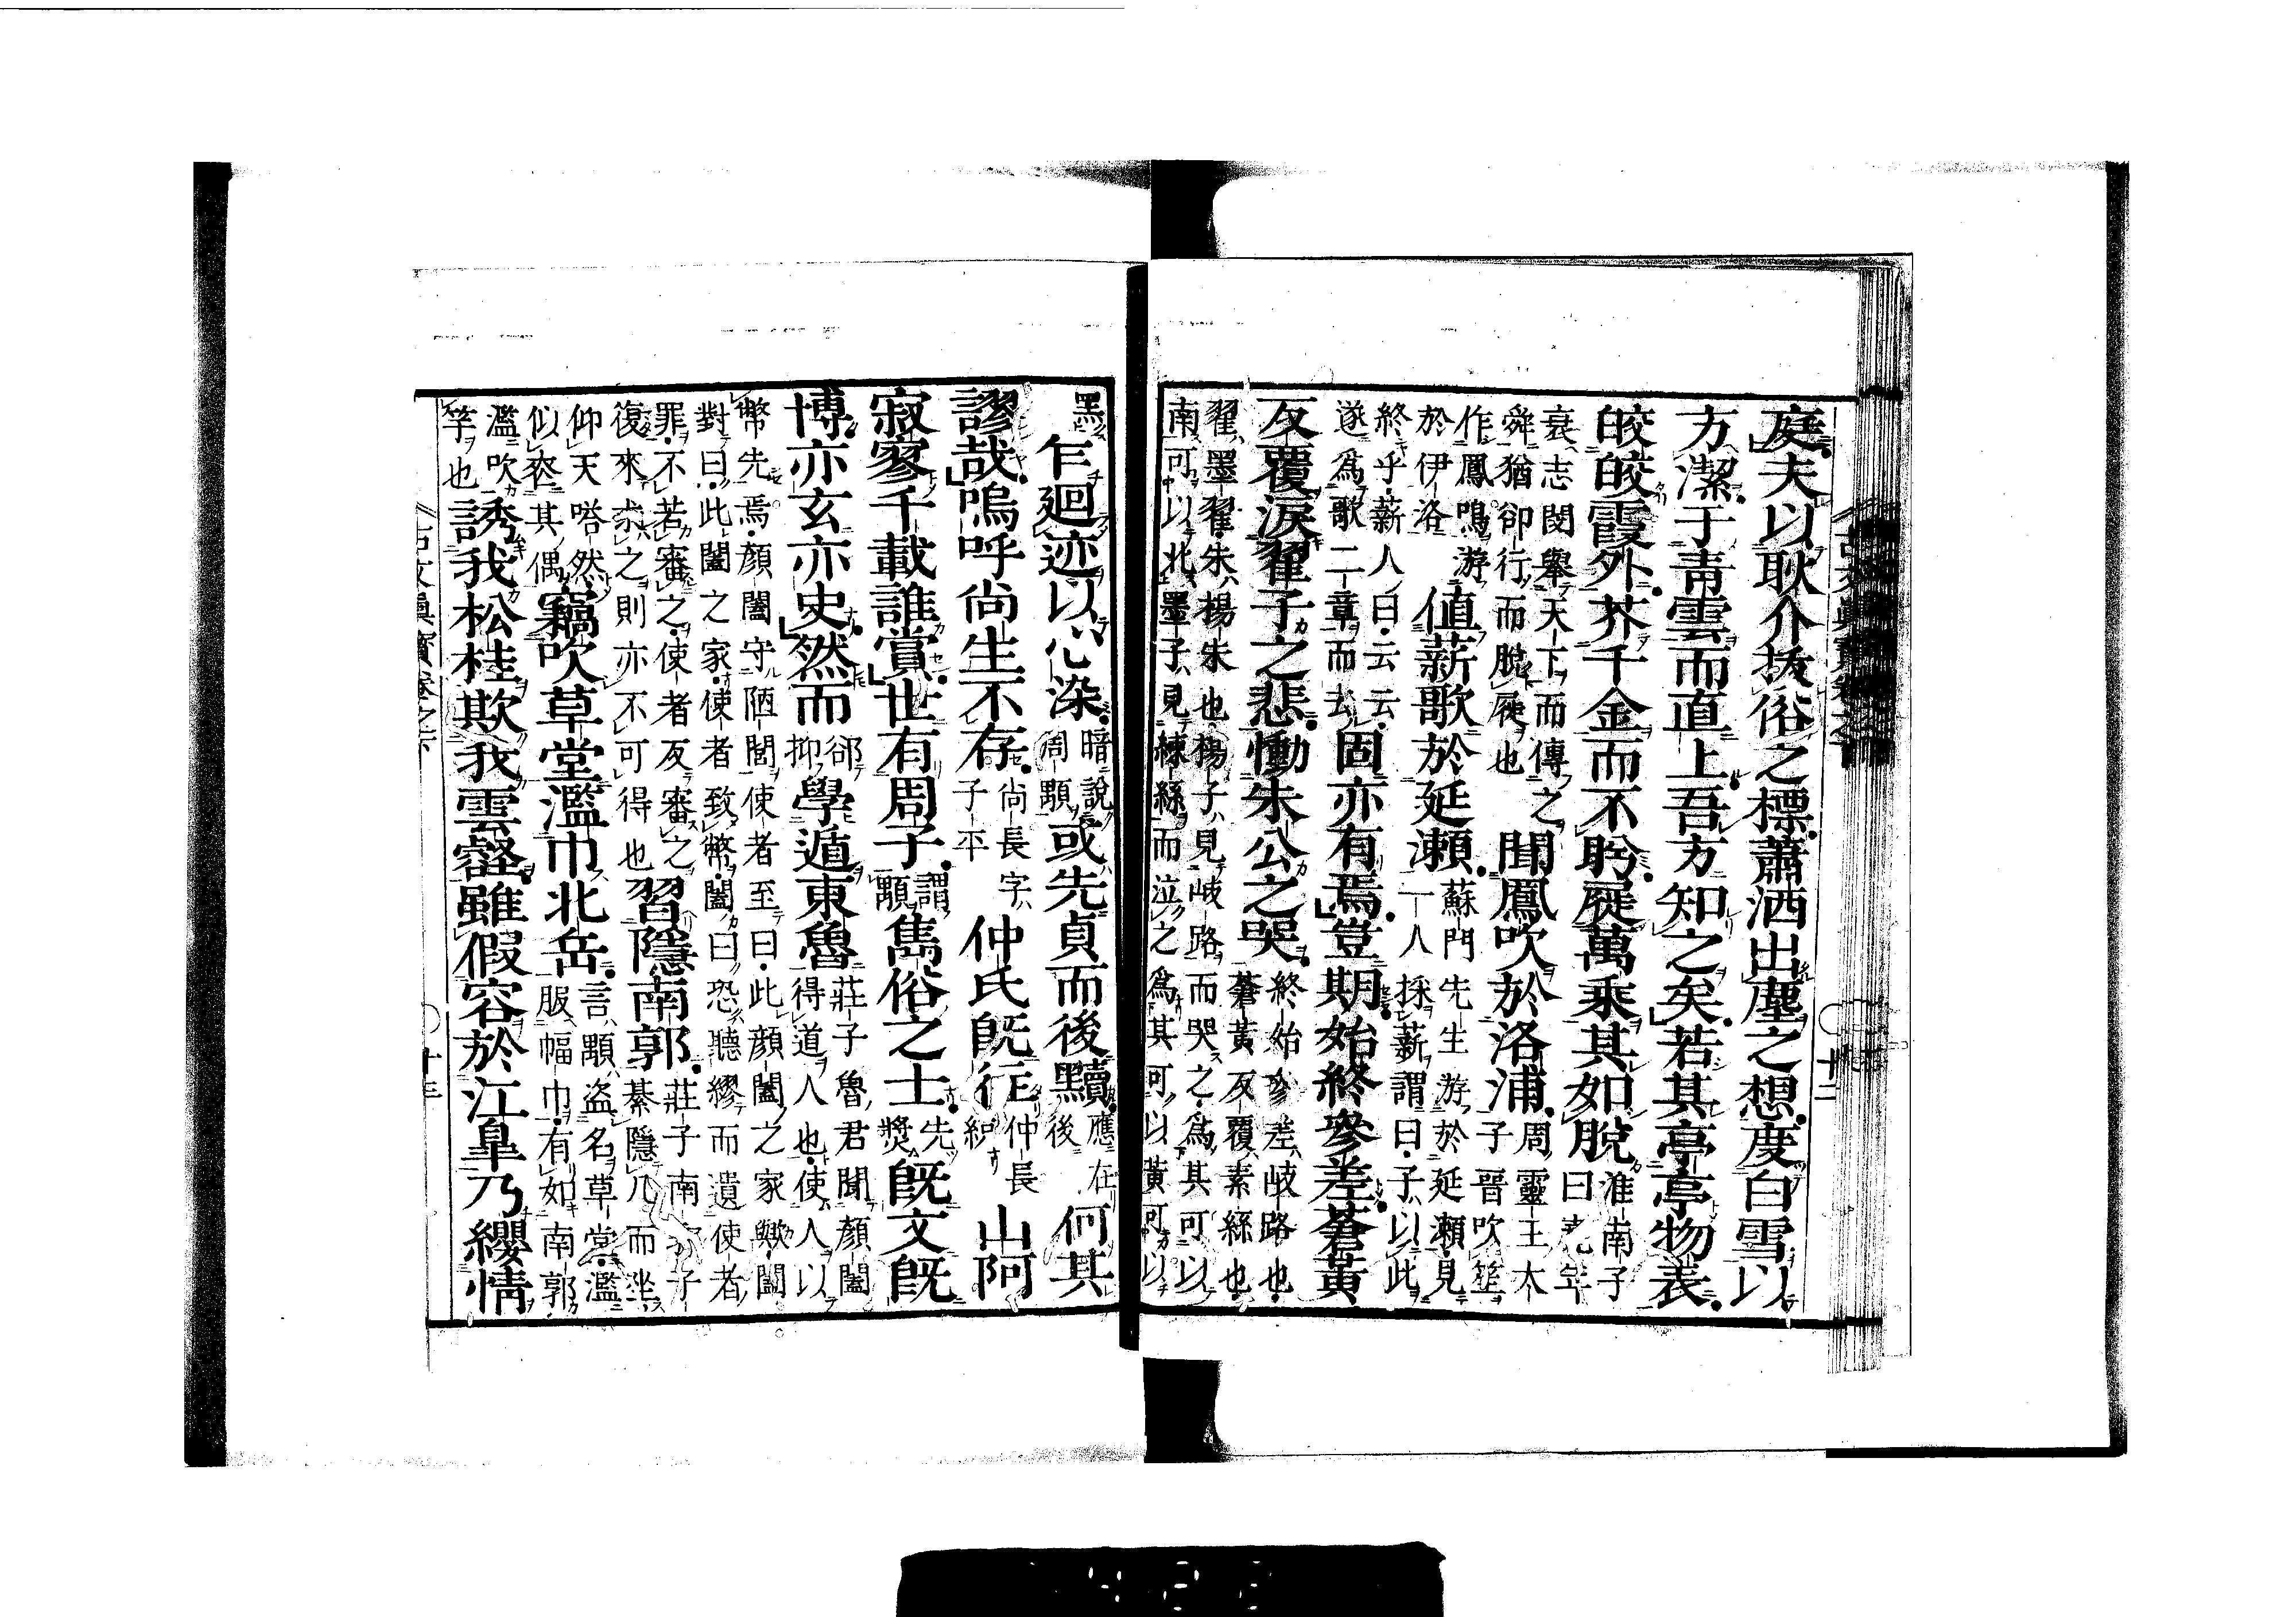 庭夫以耿介拔俗之標蕭洒出塵之想度白雪以
方潔于青雲而直上吾方知之矣若其亭亭物表
皎皎霞外芥千金而不眄屣萬乘其如脫淮南子曰堯年
衰志閔舉天下而傳之舜猶卻行而脫屣也聞鳳吹於洛浦周靈王太子晉吹笙
作鳳鳴游於伊洛値薪歌於延瀬蘇門先生游於延瀬見一人採薪謂曰子以此
終乎薪人曰云云遂爲歌二章而去固亦有焉豈期始終參差蒼黃
反覆淚翟子之悲慟朱公之哭終始參差岐路也蒼黃反覆素絲也
翟墨翟朱揚朱也揚子見岐路而哭之爲其可以
南可以北墨子見練絲而泣之爲其可以黃可以
黑乍迴迹以心染暗說周顒或先貞而後黷應在後何其
謬哉嗚呼尚生不存尚長字子平仲氏旣往仲長統山阿
寂寥千載誰賞世有周子謂顒雋俗之士先奬旣文旣
博亦玄亦史然而郤抑學遁東魯莊子魯君聞顏闔得道人也使人以
幣先焉顏闔守陋閭使者至曰此顏闔之家歟闔
對曰此闔之家使者致幣闔曰恐聽繆而遺使者
罪不若審之使者反審之復來求之則亦不可得也習隱南郭莊子南郭子綦隱几而坐
仰天嗒然似喪其偶竊吹草堂濫巾北岳言顒盜名草堂濫服幅巾有如南郭
濫吹竽也誘我松桂欺我雲壑雖假容於江皐乃纓情
古文眞寶卷之下
十二
十三